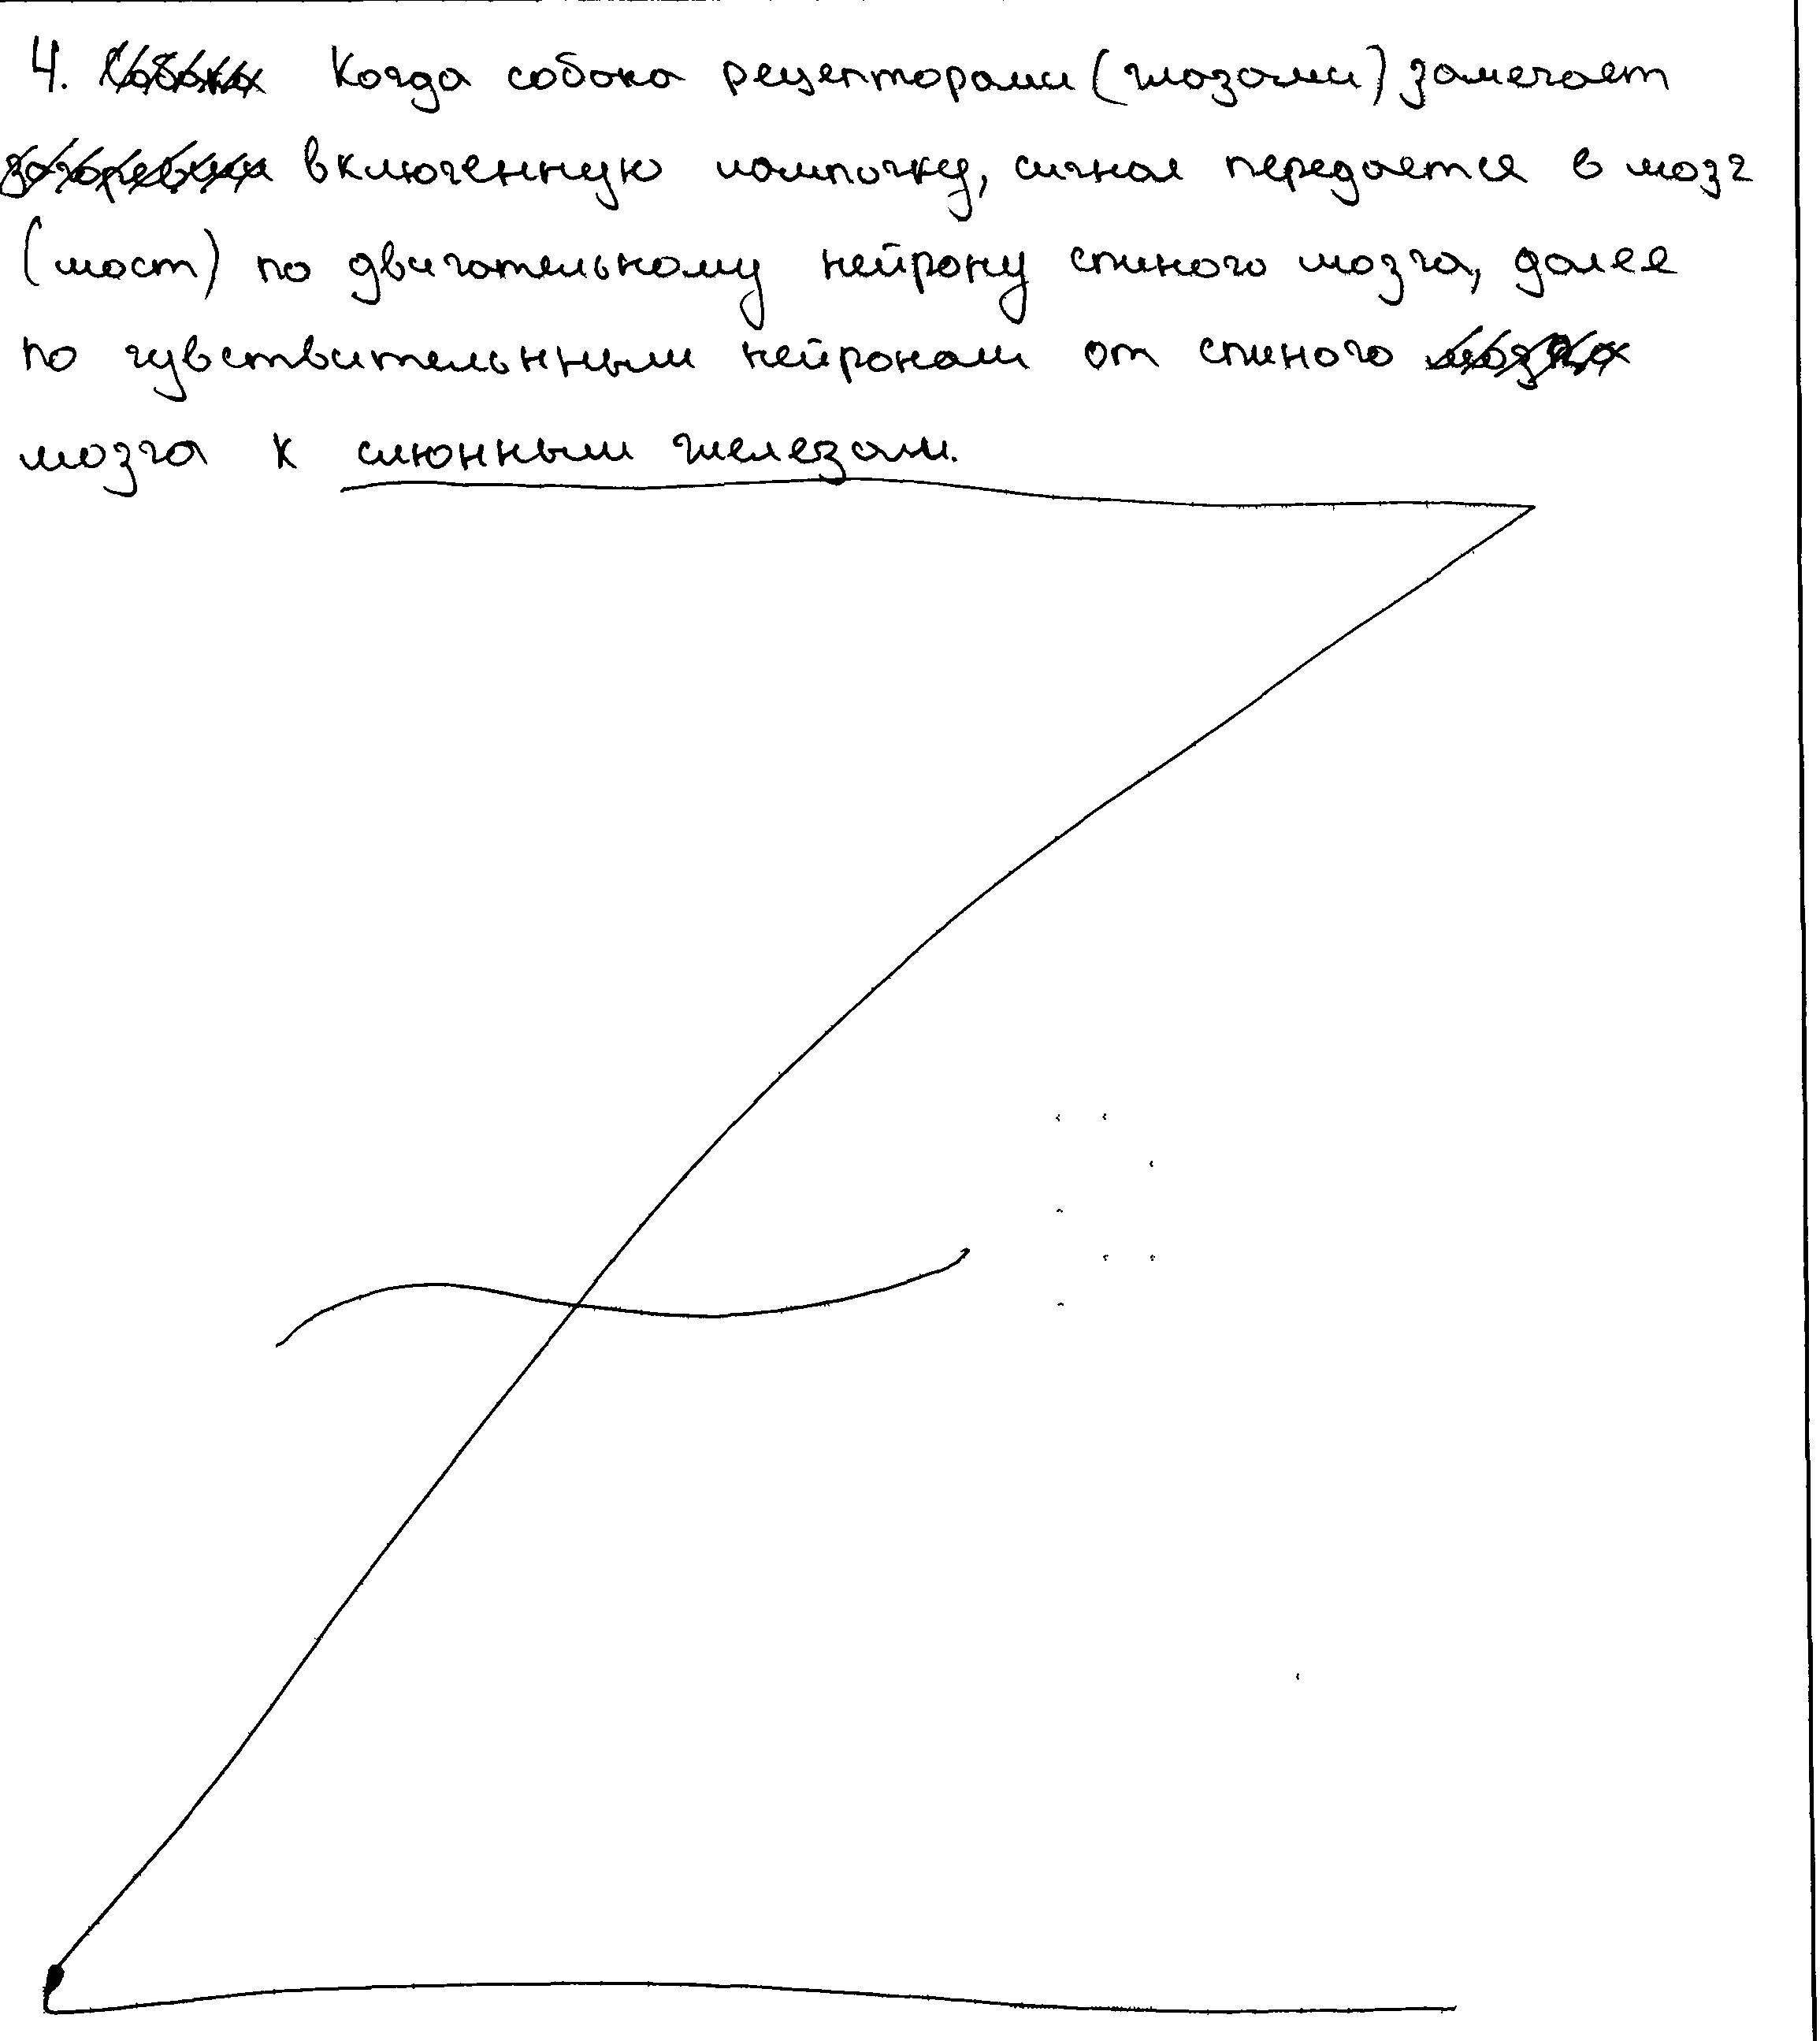 4. Когда собака рецепторами (глазами) замечает
включенную лампочку, сигнал передается в мозг
(мост) по двигательному нейрону спиного мозга, далее
по чувствительнным нейронам от спиного
мозга к слюнным железам.